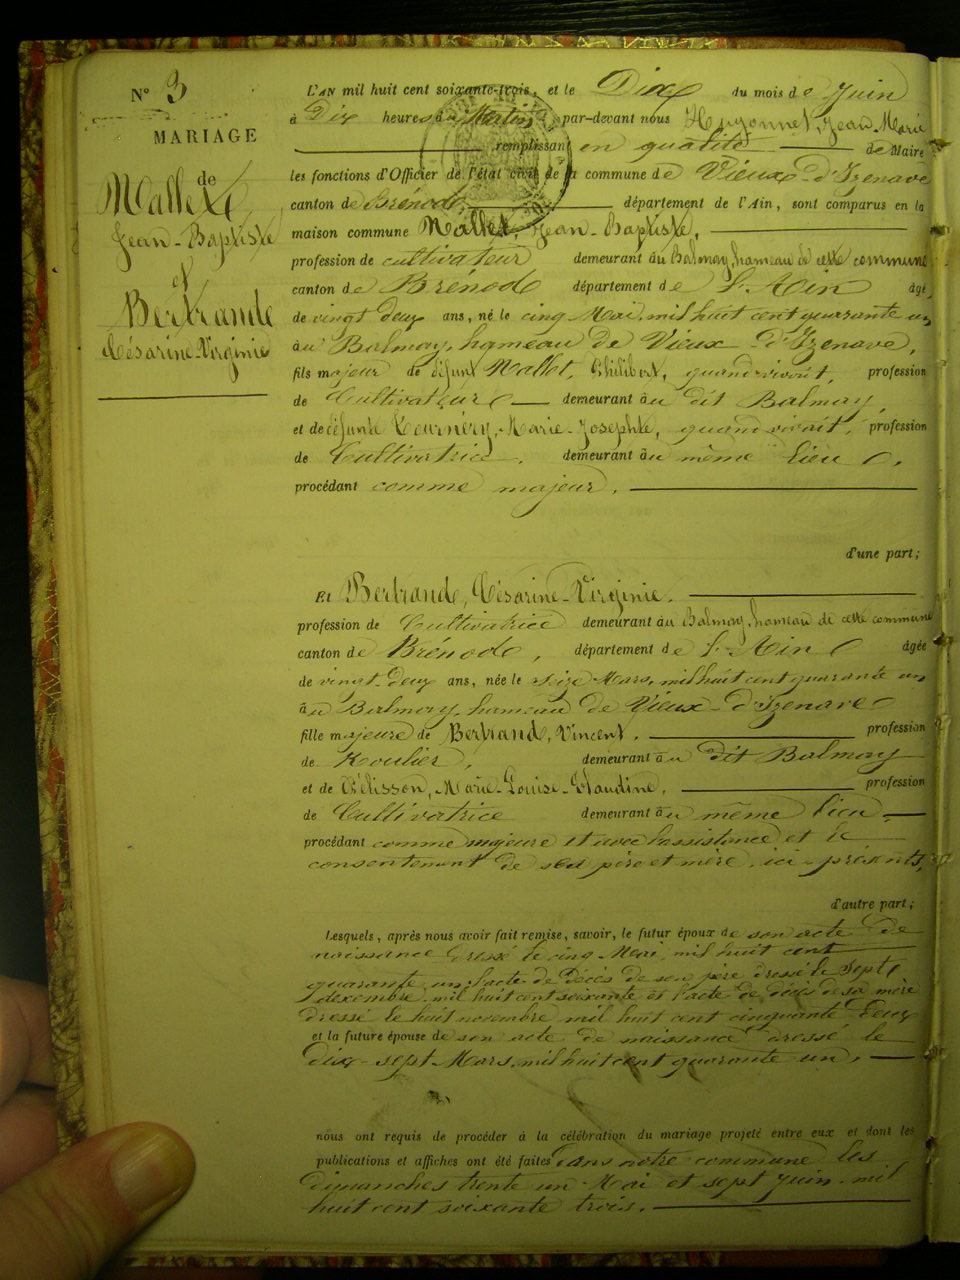 N° 3
MARIAGE
de
Mallet
Jean-Baptiste
et
Bertrande
Césarine-Virginie
L'AN mil huit cent soixante-trois, et le Dix du mois de Juin
à Dix heures du Matin, par-devant nous Huyonnet, Jean Marie
remplissant en qualité de Maire
les fonctions d'Officier de l'état civil de la commune de Vieux-d'Izenave
canton de Brénod département de l'Ain, sont comparus en la
maison commune Mallet, Jean-Baptiste,
profession de cultivateur demeurant au Balmay, hameau de cette commune
canton de Brénod département de l'Ain âgé
de vingt deux ans, né le cinq Mai, mil huit cent quarante un
au Balmay, hameau de Vieux-d'Izenave,
fils majeur de défunt Mallet, Philibert, quand vivait, profession
de Cultivateur demeurant au dit Balmay,
et de défunte Tournéry, Marie-Josephte, quand vivait, profession
de Cultivatrice, demeurant au même lieu,
procédant comme majeur.
d'une part;
Et Bertrande, Césarine-Virginie.
profession de Cultivatrice demeurant au Balmay, hameau de cette commune
canton de Brénod, département de l'Ain âgée
de vingt-deux ans, née le seize Mars, mil huit cent quarante un
au Balmay, hameau de Vieux-d'Izenave
fille majeure de Bertrand, Vincent, profession
de Roulier, demeurant au dit Balmay
et de Pélisson, Marie-Louise-Claudine, profession
de Cultivatrice demeurant au même lieu,
procédant comme majeure et avec l'assistance et le
consentement de ses père et mère, ici-présents,
d'autre part;
Lesquels, après nous avoir fait remise, savoir, le futur époux de son acte de
naissance dressé le cinq Mai, mil huit cent
quarante un, l'acte de Décès de son père dressé le Sept
décembre, mil huit cent soixante et l'acte de décès de sa mère
dressé le huit novembre mil huit cent cinquante deux
et la future épouse de son acte de naissance dressé le
dix-sept Mars, mil huit cent quarante un,
nous ont requis de procéder à la célébration du mariage projeté entre eux et dont les
publications et affiches ont été faites dans notre commune les
dimanches trente un Mai et sept Juin, mil
huit cent soixante trois.